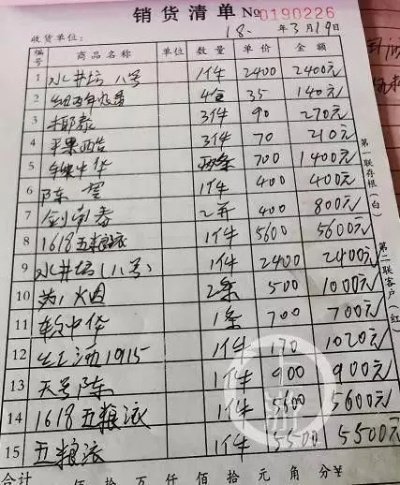 销货清单 No 0190226
收货单位： 18. 年 3月19日
编号 商品名称 单位 数量 单价 金额
1 水井坊 八号 1件 2400 2400元
2 4盒 35 140元
3 椰泰 3件 90 270元
4 苹果 3件 70 210元
5 中华 两条 700 1400元
6 陈 1件 400 400元
7 剑南春 2并 400 800元
8 1618五粮液 1件 5600 5600元
9 水井坊(八号) 1件 2400 2400元
10 2条 500 1000元
11 软中华 1条 700 700元
12 1915 1件 1020元
13 天号陈 1件 900 900元
14 1618五粮液 1件 5600 5600元
15 五粮液 1件 5500 5500元
合计 佰 拾 万 仟 佰 拾 元 角 分 ¥
第一联存根(白)
第二联客户(红)